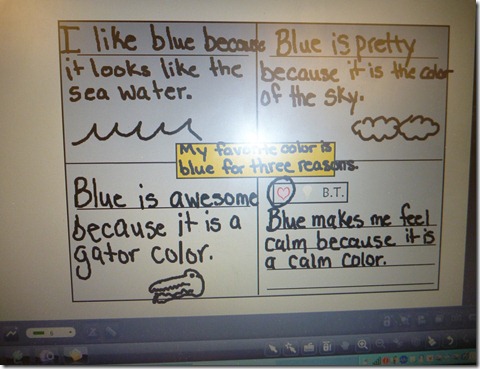 I like blue because
it looks like the
sea water.
Blue is pretty
because it is the color
of the sky.
My favorite color is
blue for three reasons.
Blue is awesome
because it is a
gator color.
B.T.
Blue makes me feel
calm because it is
a calm color.